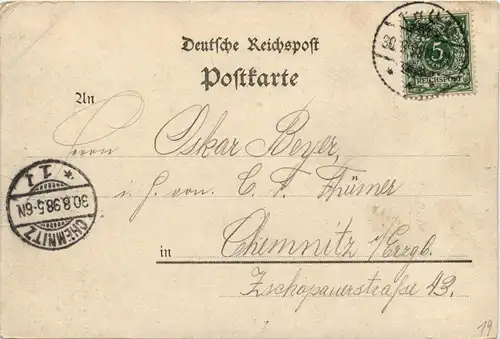 Deutsche Reichspost
Postkarte
5
REICHSPOST
30.
An
Herrn Oskar Beyer,
i. H. von. C. F. Thümer
in Chemnitz i/Erzgb.
Zschopauerstraße 43.
* 11
30.8.98.5-6N
CHEMNITZ
19